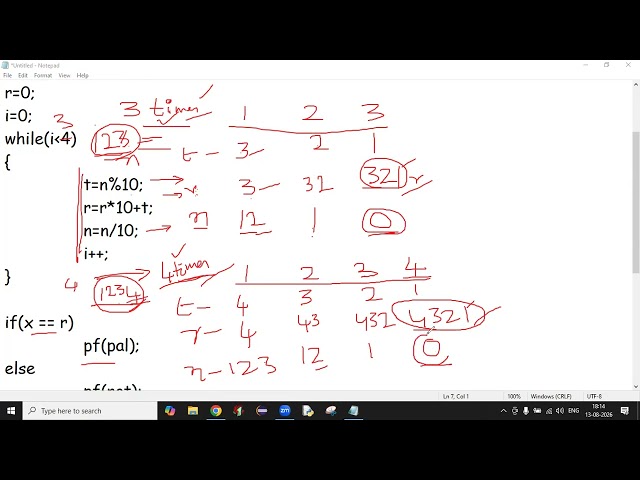 *Untitled - Notepad
File Edit Format View Help
r=0;
i=0; 3 3 times 1 2 3
while(i<4) 123 n t - 3 2 1
{
t=n%10; r 3 32 321 r
r=r*10+t;
n=n/10; n 12 1 0
i++;
} 4 4 times 1 2 3 4
1234 t - 4 3 2 1
if(x == r) r - 4 43 432 4321
pf(pal); n - 123 12 1 0
else
pf(not);
Ln 7, Col 1 100% Windows (CRLF) UTF-8
Type here to search ENG 18:14
13-08-2026